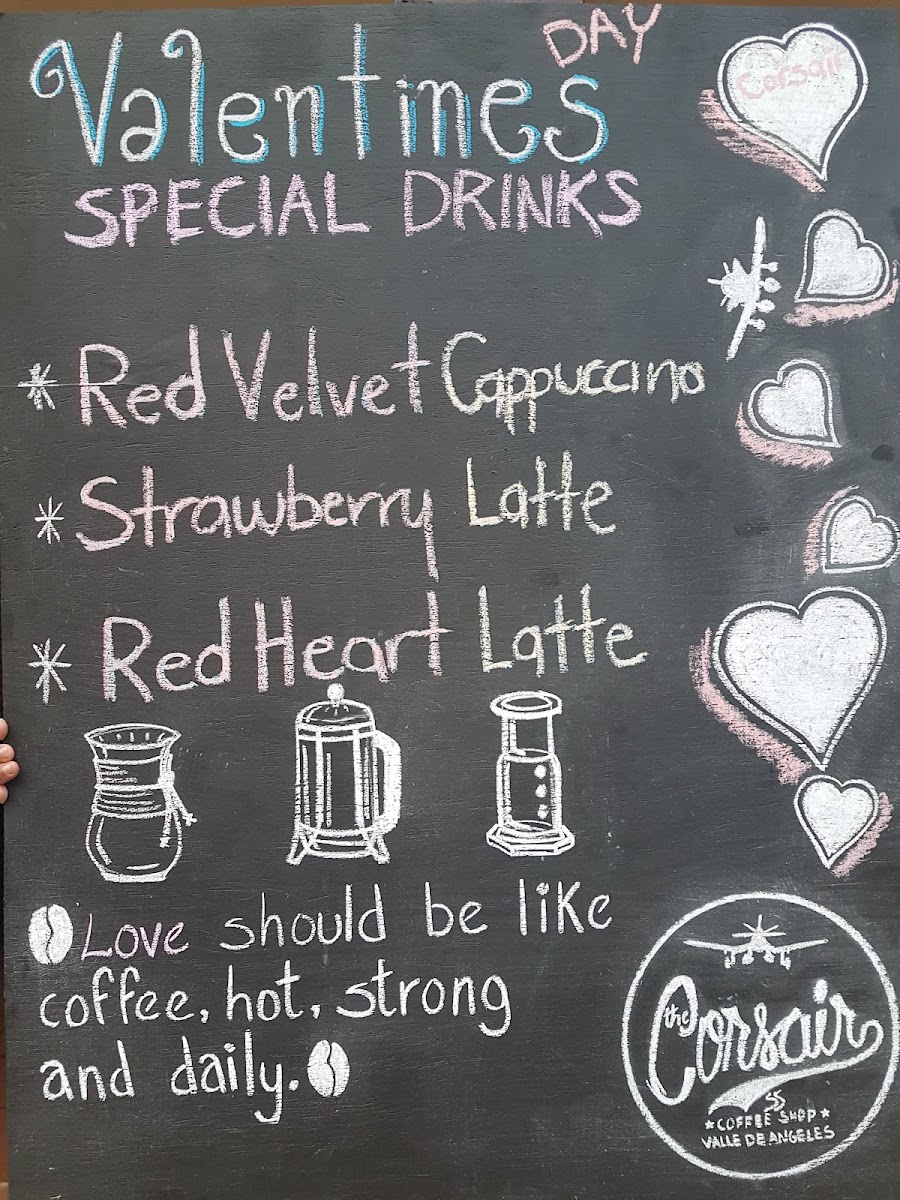 Valentines DAY
SPECIAL DRINKS
Corsair
* Red Velvet Cappuccino
* Strawberry Latte
* Red Heart Latte
Love should be like
coffee, hot, strong
and daily.
the Corsair
COFFEE SHOP
VALLE DE ANGELES